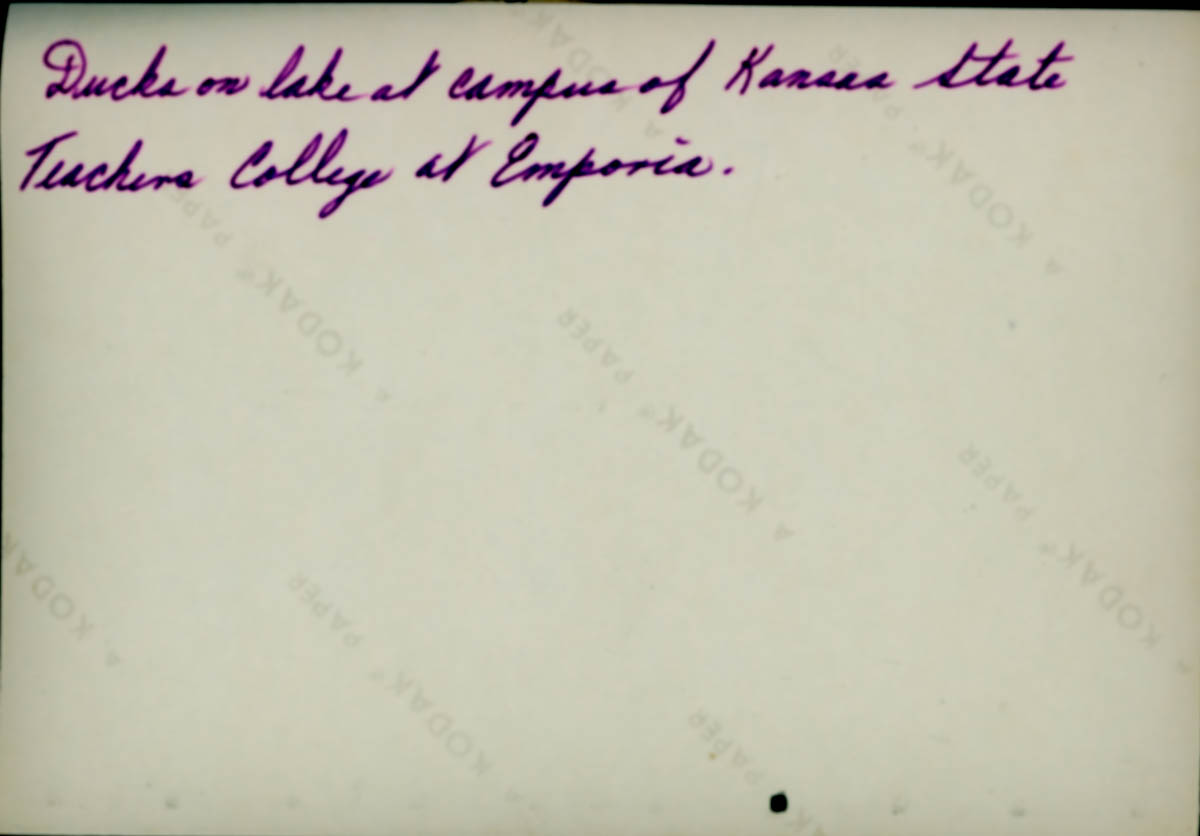 Ducks on lake at campus of Kansas State
Teachers College at Emporia.
A KODAK® PAPER
A KODAK® PAPER
A KODAK® PAPER
A KODAK® PAPER
A KODAK
KODAK® PAPER
PAPER